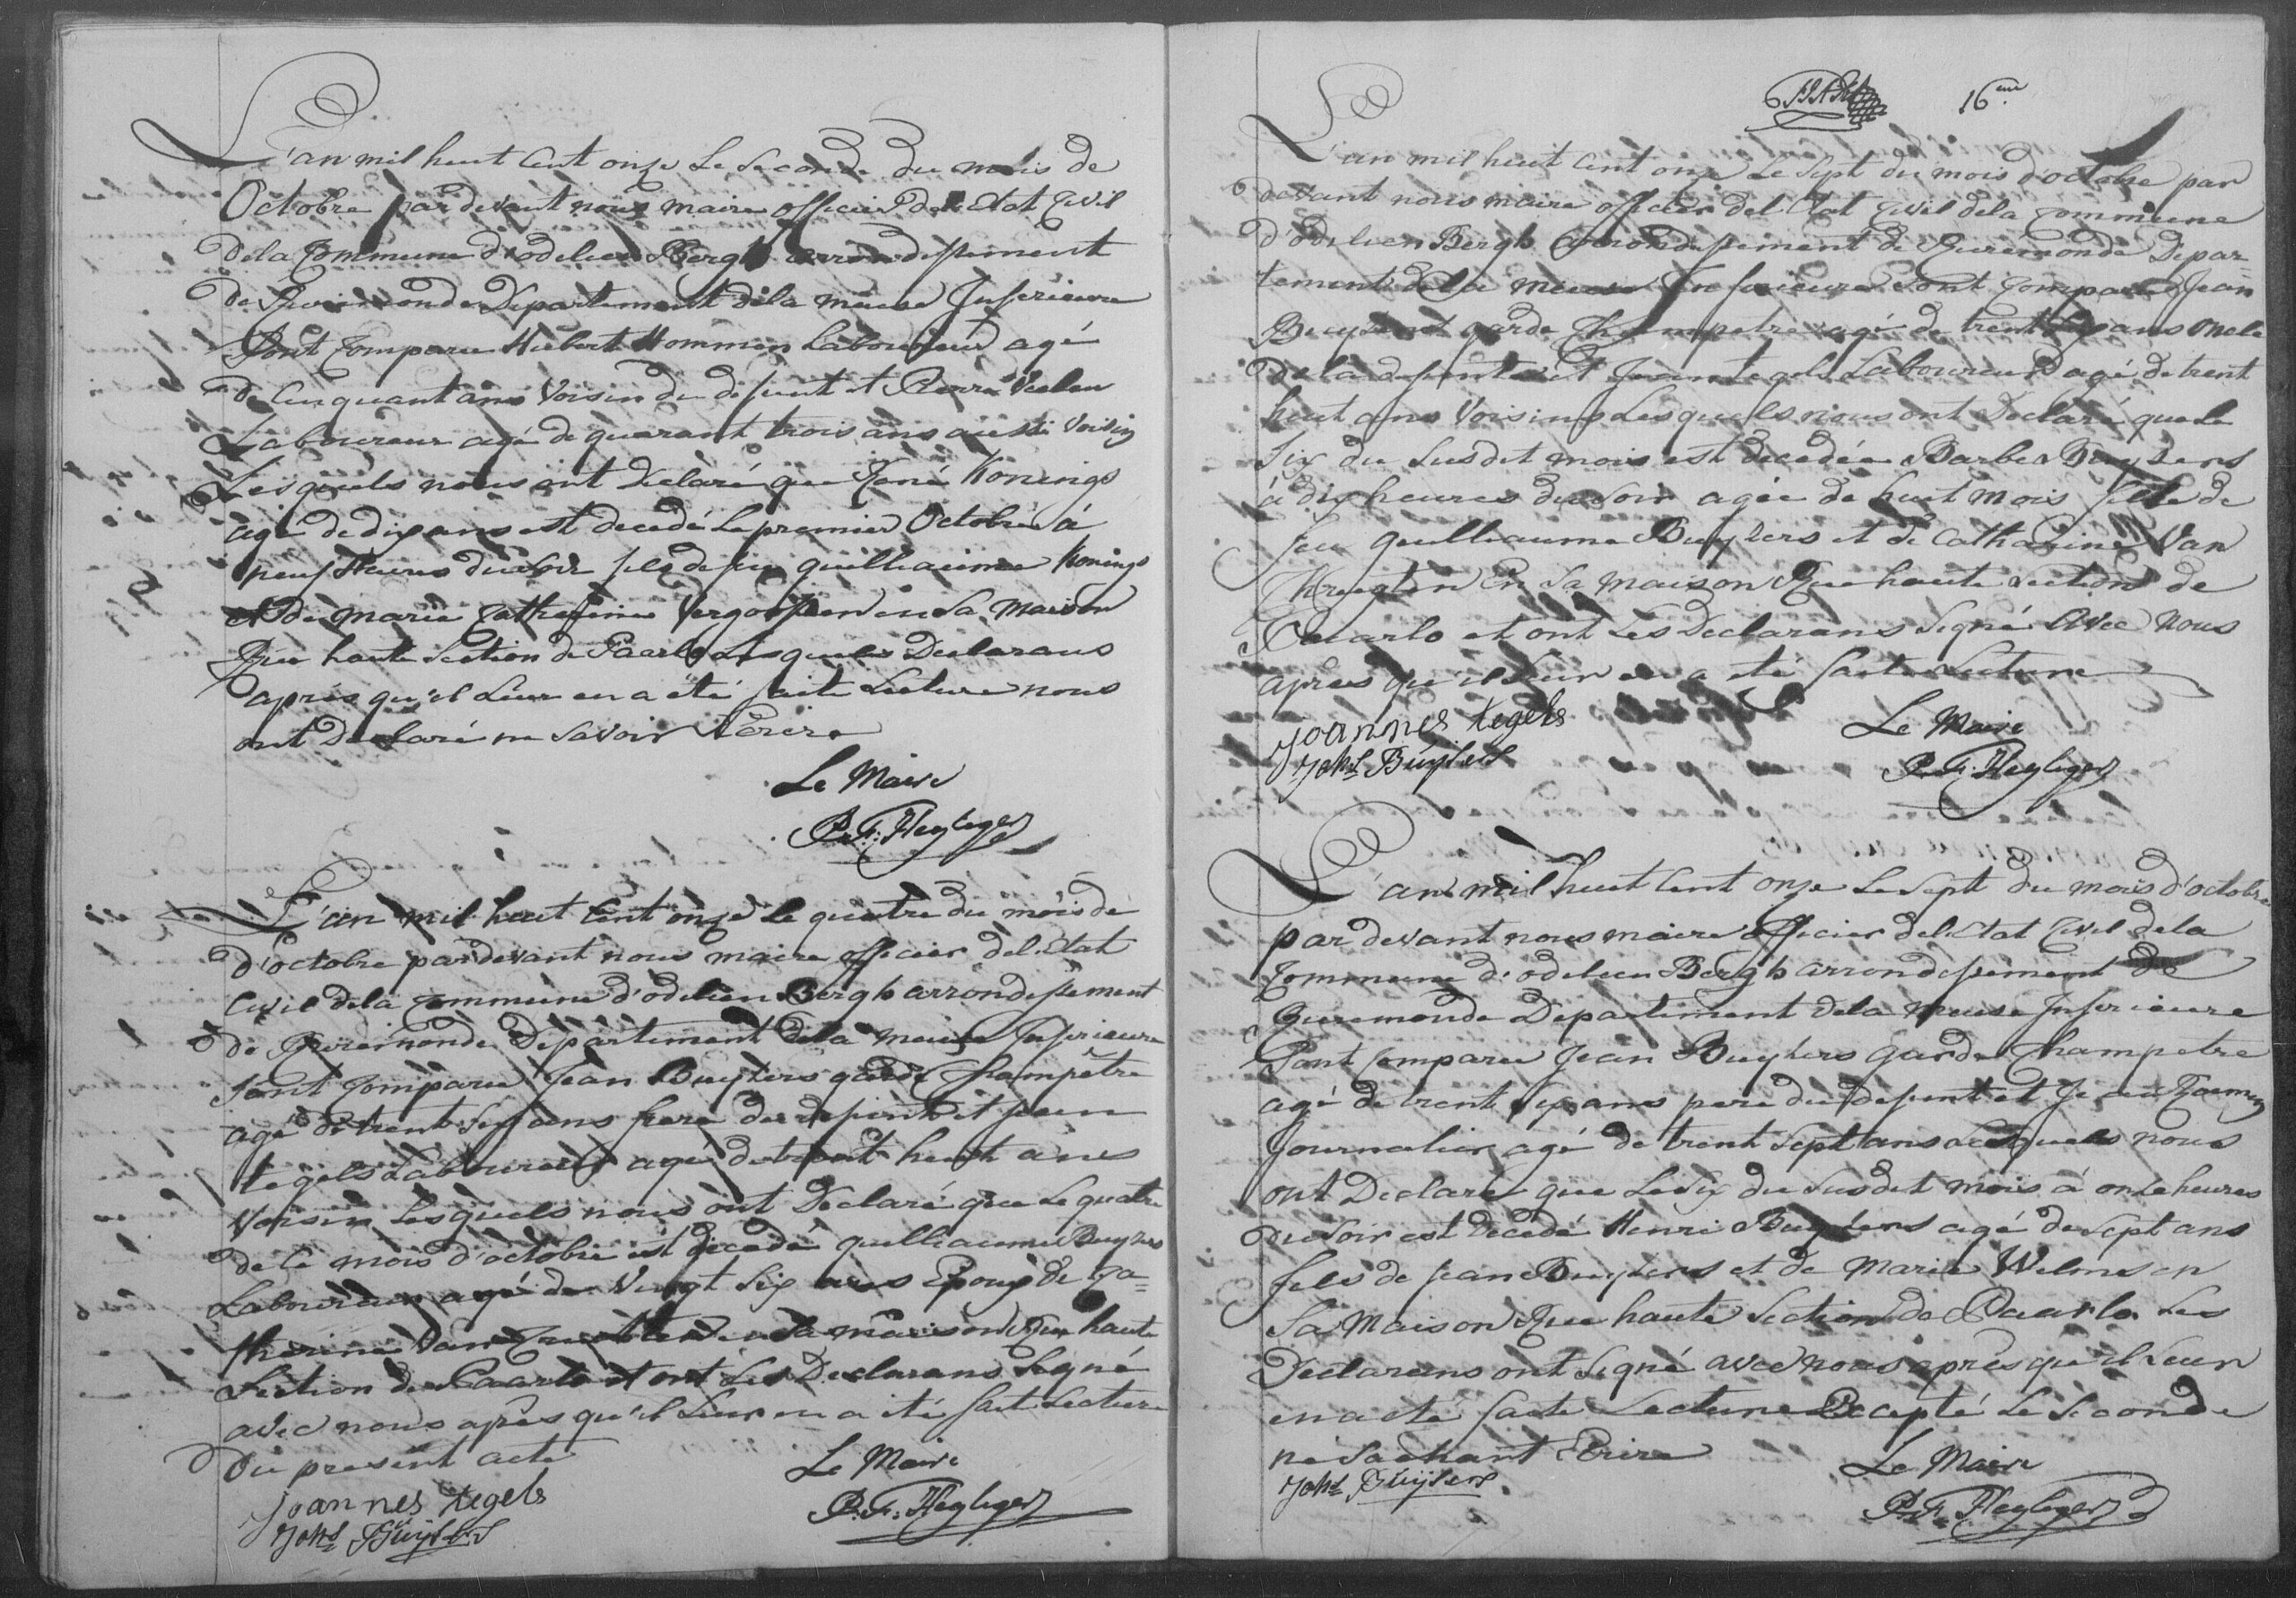 L'an mil huit Cent onze Le Seconde du mois de
Octobre par devant nous maire officier del Etat Civil
dela Commune d'odelien Bergh arrondissement
de Ruremonde Departement dela meuse Inferieure
Sont Comparu Hubert Hommen Laboureur agé
de Cinquant ans Voisin du defunt et Pierre
Laboureur agé de quarant trois ans aussi Voisin
Lesquels nous ont declaré que René Konings
agé de dix ans est decedé Le premier Octobre à
neuf Heures du soir fils de feu guilliaume Konings
et de marie Catherine Vergoossen en Sa Maison
Rue haute Section de Paarlo Lesquels Declarans
après qu'il Leur en a été faite Lecture nous
ont Declaré ne Savoir Ecrire
Le Maire
P. F. Heyligers
L'an mil huit Cent onze le quatre du mois de
d'octobre par devant nous maire officier del Etat
Civil dela Commune d'odelien Bergh arrondissement
de Ruremonde Departement dela meuse Inferieure
Sont Comparu Jean Buyters garde Champêtre
agé de trent Six ans frere du defunt et Jean
tegels Laboureur agé de trent huit ans
Voisin Lesquels nous ont Declaré que Le quatre
de Ce mois d'octobre est decedé guilliaume Buyters
Laboureur agé de Vingt Six ans Epoux de Ca=
therine Van en Sa maison Rue haute
Section de Paarlo et ont Les Declarans Signé
avec nous après qu'il Leur en a été fait Lecture
du present acte
Joannes tegels
Johs Buÿters
Le Maire
P. F. Heyligers
16eme
L'an mil huit Cent onze Le Sept du mois d'octobre par
devant nous maire officier del Etat Civil dela Commune
d'odelien Bergh arrondissement de Ruremonde Depar=
tement dela meuse Inferieure Sont Comparu Jean
Buyters garde Champetre agé de trent Six ans oncle
dela defunte et Jean tegels Laboureur agé de trent
huit ans Voisins Lesquels nous ont Declaré que Le
Six du Susdit mois est decedée Barbe Buyters
à dix heures du Soir agée de huit mois fille de
feu guilliaume Buyters et de Catharine Van
en Sa maison Rue haute Section de
Paarlo et ont Les Declarans Signé avec nous
après qu'il Leur en a été faite Lecture
Joannes tegels
Johs Buÿters
Le Maire
P. F. Heyligers
L'an mil huit Cent onze Le Sept du mois d'octobre
par devant nous maire officier del Etat Civil dela
Commune d'odelien Bergh arrondissement de
Ruremonde Departement dela meuse Inferieure
Sont Comparu Jean Buyters garde Champetre
agé de trent Six ans pere du defunt et Jean
Journalier agé de trent Sept ans Lesquels nous
ont Declaré que Le Six du Susdit mois à onze heures
du Soir est decedé Henri Buyters agé de Sept ans
fils de Jean Buyters et de Marie Welms en
Sa Maison Rue haute Section de Paarlo Les
Declarans ont Signé avec nous après qu'il Leur
en a été faite Lecture Excepté Le Seconde
ne Sachant Ecrire
Johs Buÿters
Le Maire
P. F. Heyligers